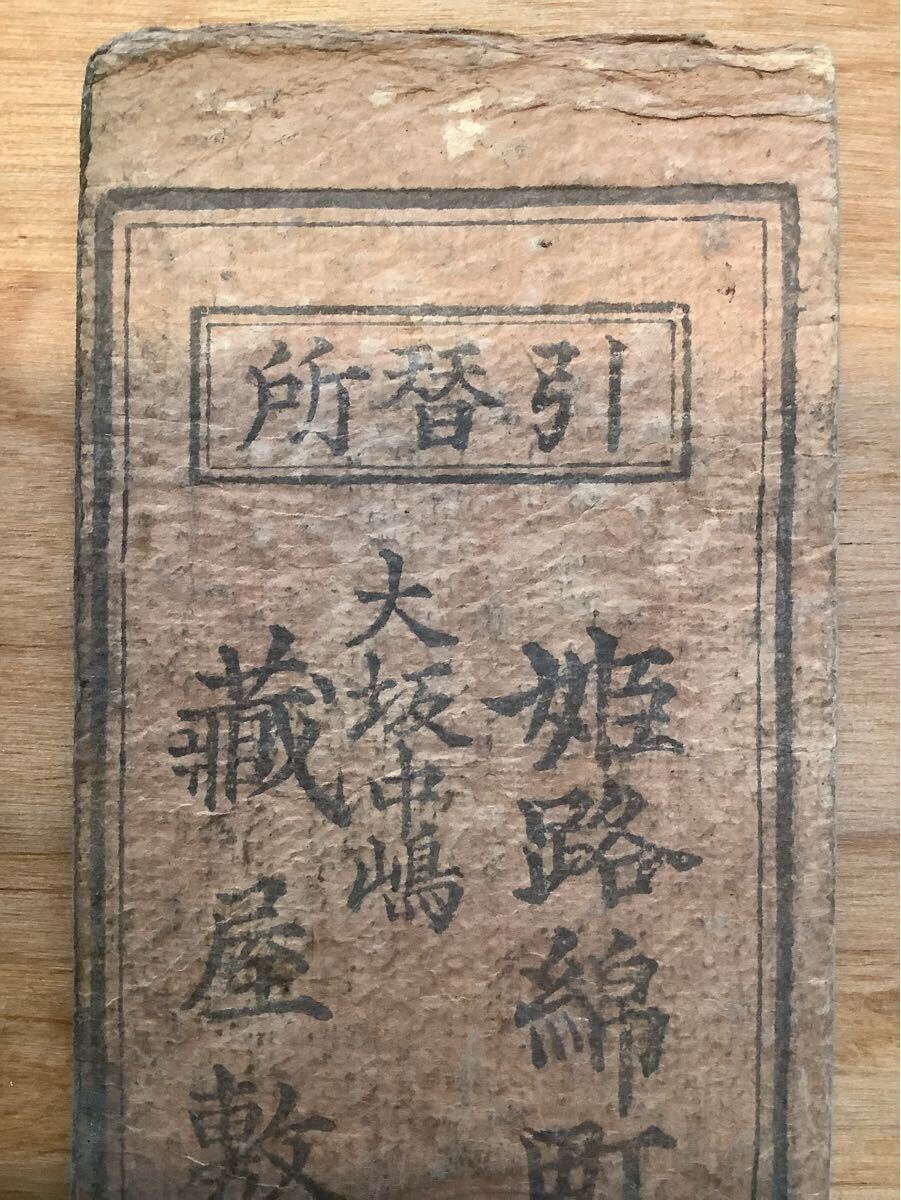 引替所
姫路綿町
大坂中嶋
藏屋敷